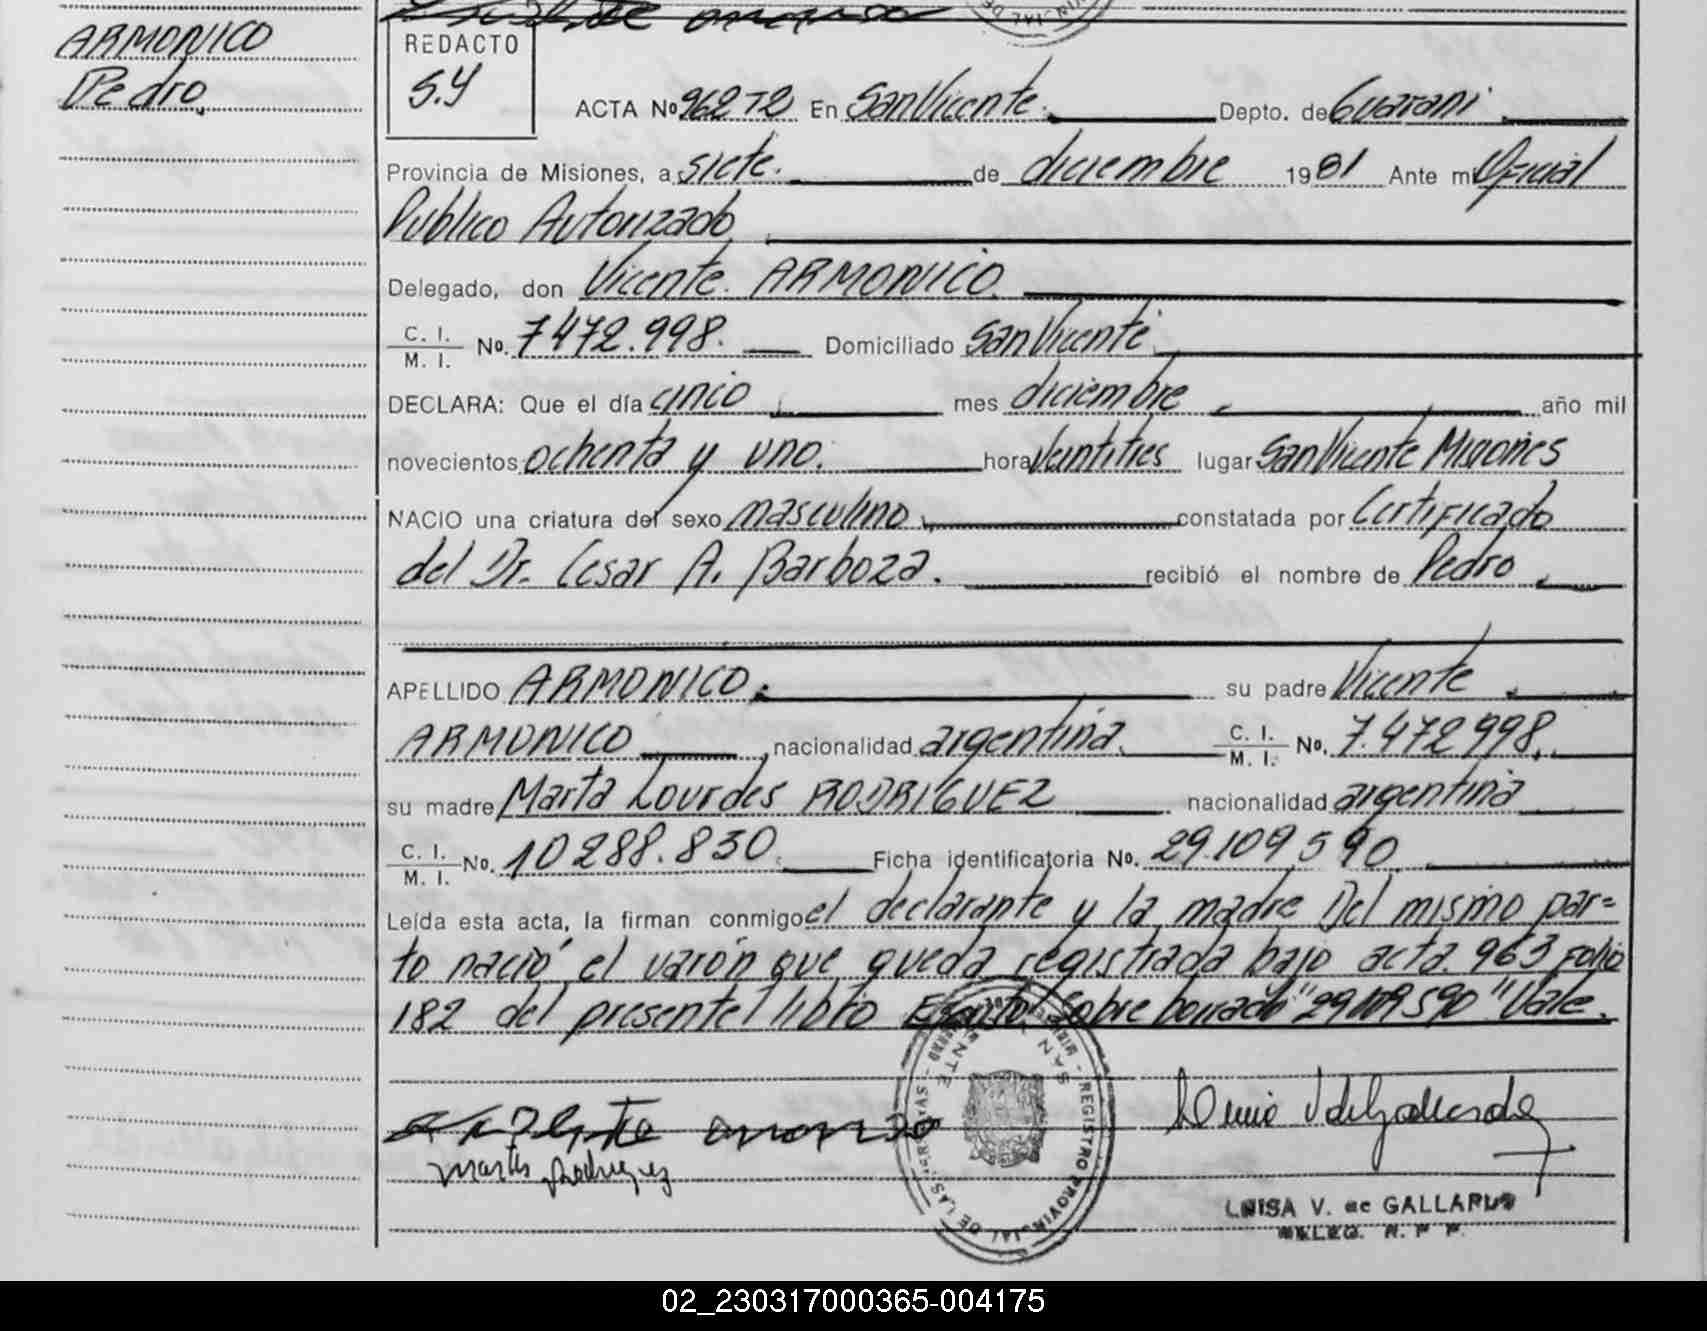 ARMONICO
Pedro
REDACTO
S.Y
ACTA Nº 962 T2 En San Vicente. Depto. de Guarani
Provincia de Misiones, a siete. de diciembre 1981 Ante mi Oficial
Publico Autorizado
Delegado, don Vicente ARMONICO
C. I.
M. I.
No. 7472.998. Domiciliado San Vicente
DECLARA: Que el día cinco mes diciembre año mil
novecientos ochenta y uno. hora veintitres lugar San Vicente Misiones
NACIO una criatura del sexo masculino constatada por Certificado
del Dr. Cesar A. Barboza. recibió el nombre de Pedro
APELLIDO ARMONICO su padre Vicente
ARMONICO nacionalidad argentina C. I.
M. I. No. 7.472998.
su madre Marta Lourdes RODRIGUEZ nacionalidad argentina
C. I.
M. I.
No. 10288.830. Ficha identificatoria No. 29.109590
Leída esta acta, la firman conmigo el declarante y la madre Del mismo par=
to nació el varón que queda registrada bajo acta 963 folio
182 del presente libro Escrito Sobre borrado "29109590" Vale.
SAN VICENTE
REGISTRO PROVINCIAL DE LAS PERSONAS
Marta Rodriguez
LUISA V. de GALLARDO
DELEG. R. P. P.
02_230317000365-004175